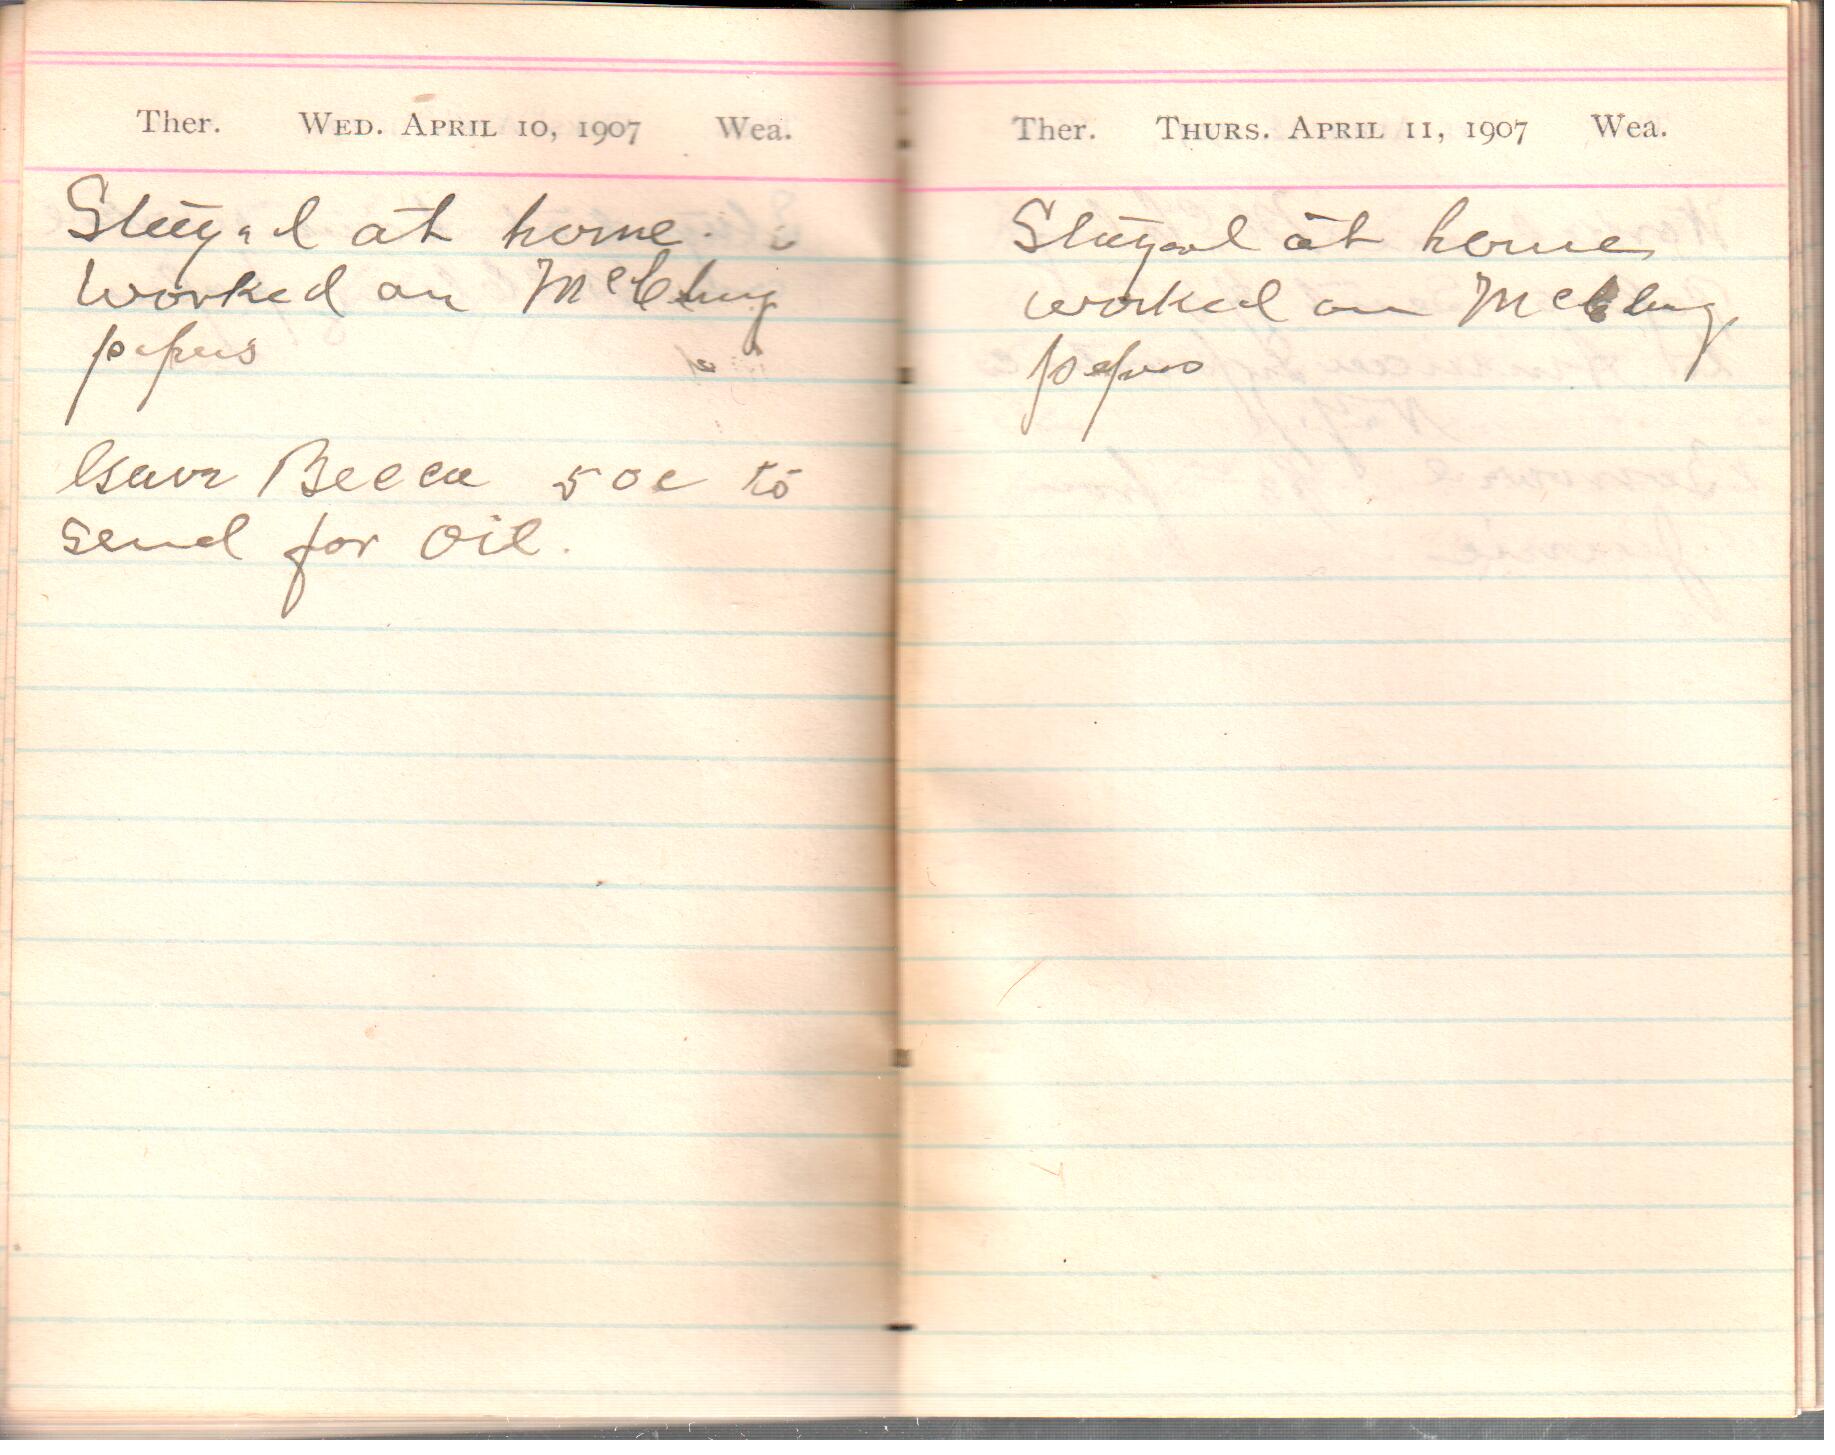 Ther. WED. APRIL 10, 1907 Wea.
Stayed at home.
Worked on McClung
papers
Gave Becca 50c to
send for Oil.
Ther. THURS. APRIL 11, 1907 Wea.
Stayed at home
worked on McClung
papers